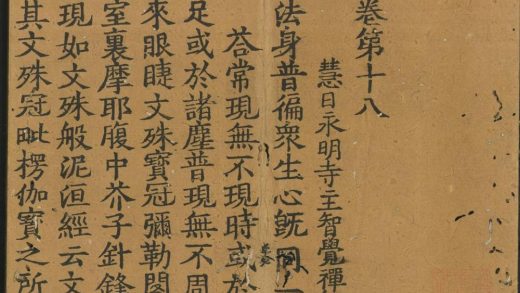 卷第十八
慧日永明寺主智覺禪
法身普徧衆生心旣同
荅常現無不現時或於
足或於諸塵普現無不周
來眼睛文殊寶冠彌勒閣
室裏摩耶腹中芥子針鋒
現如文殊般泥洹經云文
其文殊冠毗楞伽寶之所